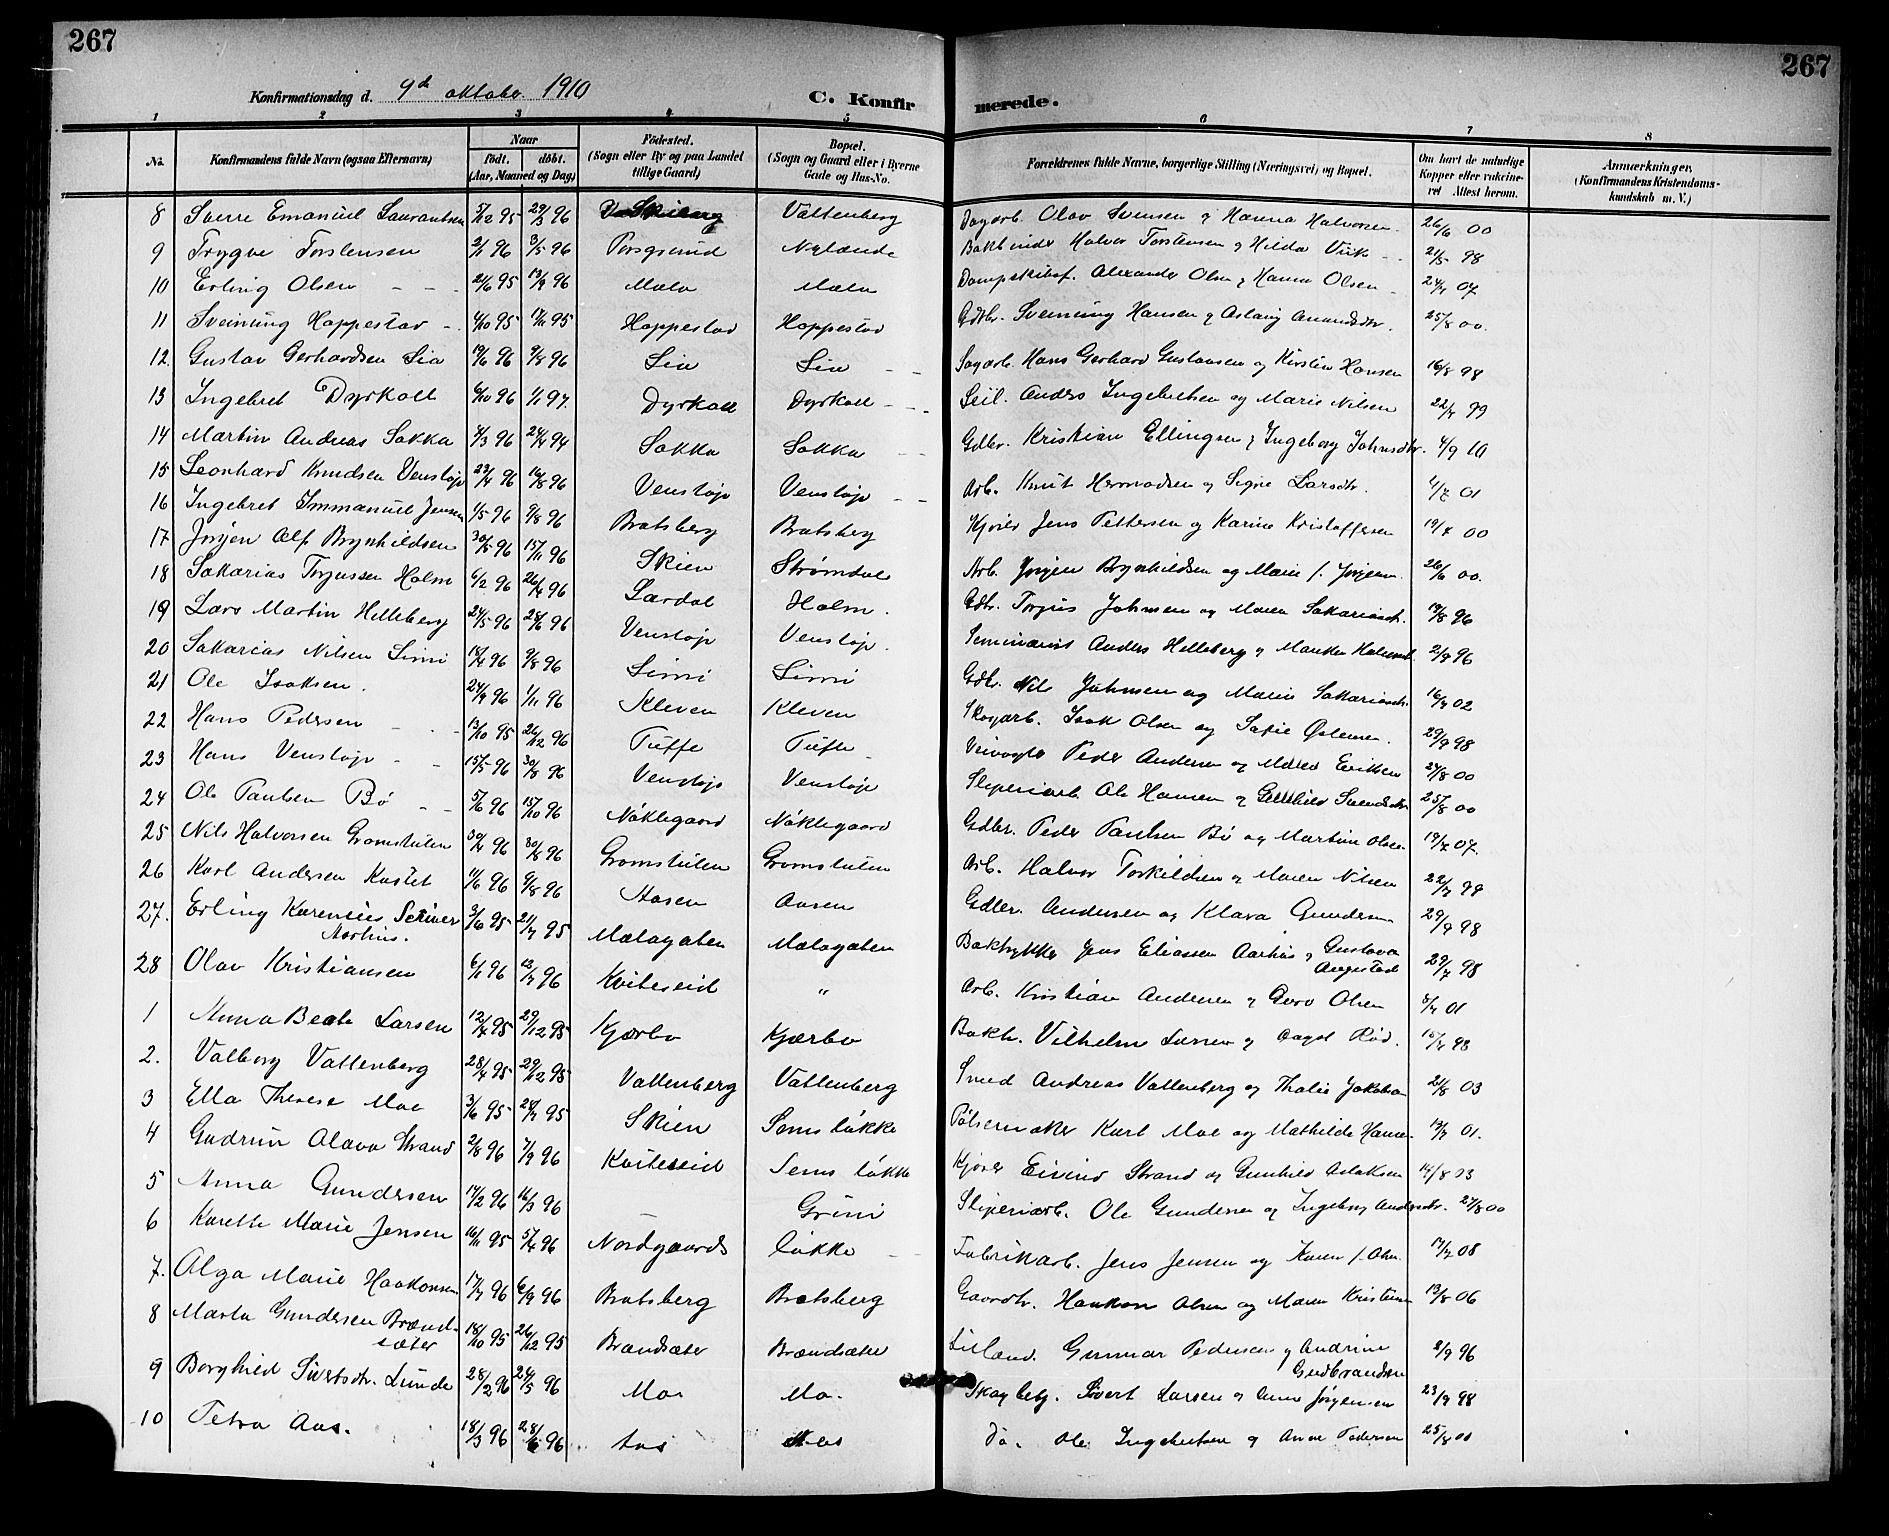 267
267
Konfirmationsdag d. 9de oktober 1910
C. Konfirmerede.
1 2 3 4 5 6 7 8
No. Konfirmandens fulde Navn (ogsaa Efternavn) Naar födt. döbt. (Aar, Maaned og Dag) Födested. (Sogn eller By og paa Landet tillige Gaard) Bopæl. (Sogn og Gaard eller i Byerne Gade og Hus-No. Forældrenes fulde Navne, borgerlige Stilling (Næringsvei) og Bopæl. Om havt de naturlige Kopper eller vaccineret Attest herom. Anmærkninger, (Konfirmandens Kristendomskundskab m. V.)
8 Sverre Emanuel 5/12 95 29/3 96 Skien Vattenberg Dagarb. Olav Svensen og Hanna Halvorsen 26/6 00
9 Trygve Torstensen 2/1 96 3/5 96 Porsgrund Nylænde Bokbinder Halvor Torstensen og Hilda Virik 21/5 98
10 Erling Olsen 21/6 95 13/9 96 Mæla Mæla Dampskibsf. Alexander Olsen og Hanna Olsen 24/9 07
11 Sveinung Hoppestad 4/10 95 17/11 95 Hoppestad Hoppestad Gdbr. Sveinung Hansen og Aslaug Amundsdtr. 25/8 00.
12 Gustav Gerhardsen Lia 19/6 96 9/8 96 Lia Lia Sagarb. Hans Gerhard Gustavsen og Kirstin Hansen 16/8 98
13 Ingebret Dyrkoll 6/10 96 1/1 97. Dyrkoll Dyrkoll Seil. Anders Ingebretsen og Marie Nilsen 22/7 99
14 Martin Andreas Sokka 4/3 96 Sokka Sokka Gdbr. Kristian Ellingsen og Ingeborg Johnsdtr. 4/9 10
15 Leonhard Knudsen Venstøp 23/4 96 16/8 96 Venstøp Venstøp Arb. Knut Hermodsen og Signe Larsdtr. 01
16 Ingebret Immanuel Jensen 1/5 96 9/8 96 Bratsberg Bratsberg Kjører Jens Pettersen og Karine Kristoffersen 19/7 00
17 Jørgen Alf Brynhildsen 30/5 96 15/11 96 Skien Strømdal Arb. Jørgen Brynhildsen og Marie f. Jørgensen 26/6 00.
18 Sakarias Torjussen Holm 6/2 96 26/4 96 Lærdal Holm. Gdbr. Torjus Johnsen og Maren Sakariasdr. 19/8 96
19 Lars Martin Helleberg 24/5 96 28/6 96 Venstøp Venstøp. Seminarist Anders Helleberg og 2/9 96
20 Sakarias Nilsen Limi 18/4 96 9/8 96 Limi Limi Gdbr. Nils Johnsen og Maren Sakariasdr. 16/7 02
21 Ole Isaksen. 24/9 96 1/11 96 Kleven Kleven Skogarb. Isak Olsen og Sofie 29/9 98
22 Hans Pedersen 13/10 95 26/12 96 Tufte Tufte Veivogter Peder Andersen og Maren Eriksen 24/8 00
23 Hans Venstøp 15/5 96 30/8 96 Venstøp Venstøp Sliperiarb. Ole Hansen og 25/8 00
24 Ole Paulsen Bø 5/6 96 15/10 96 Nøklegaard Nøklegaard Gdbr. Peder Paulsen Bø og Martine Olsen 19/7 07.
25 Nils Halvorsen Gromstulen 30/4 96 30/8 96 Gromstulen Gromstulen Arb. Halvor Torkildsen og Maren Nilsen 22/7 99
26 Karl Andersen Kastet 11/6 96 9/8 96 Aasen Aasen Gdbr. Andersen og Klara Gundersen 29/9 98
27. Erling Karenius Schiver Aarhus. 3/6 95 21/7 95 Mælagaten Mælagaten Boktrykker Jens Eliassen Aarhus og Gustava Angestad 29/7 98
28 Olav Kristiansen 6/1 96 12/7 96 Kviteseid " Arb. Kristian Andersen og Guro Olsen 8/7 01
1 Anna Beate Larsen 12/4 95 29/12 95 Kjærbo Kjærbo Bokh. Vilhelm Larsen og Aagot Rød. 98
2. Valborg Vattenberg 28/4 95 29/12 95 Vattenberg Vattenberg Smed Andreas Vattenberg og Thalie Jakobsen 21/8 03
3 Ella Therese Moe 3/6 95 28/7 95 Skien Sems løkke Pølsemaker Karl Moe og Mathilde Hansen 01.
4 Gudrun Olava Strand 2/8 96 7/9 96 Kviteseid Sems løkke Kjører Eivind Strand og Gunhild Aslaksen 14/8 03
5 Anna Gundersen 14/2 96 16/3 96 — Grini Sliperiarb. Ole Gundersen og Ingeborg Andersdtr. 27/8 00
6 Karelle Marie Jensen 16/11 95 5/4 96 Nordgaards løkke Fabrikarb. Jens Jensen og Karen f. Olsen 08
7. Olga Marie Haakonsen 17/7 96 6/9 96 Bratsberg Bratsberg Gaardbr. Haakon Olsen og Maren Kristensen 13/8 06
8 Marta Gundersen Brændsæter 18/10 95 26/12 95 Brændsæter Brændsæter Gunnar Pedersen og Andrine Gudbrandsen 2/9 96
9 Borghild Sivertsdtr. Lunde 28/2 96 24/5 96 Moe Mo. Sivert Larsen og Anne Jørgensen 23/9 98
10 Petra Aas. 18/3 96 28/6 96 Aas Aas Do. Ole Ingebretsen og Anne Pedersen 25/8 00